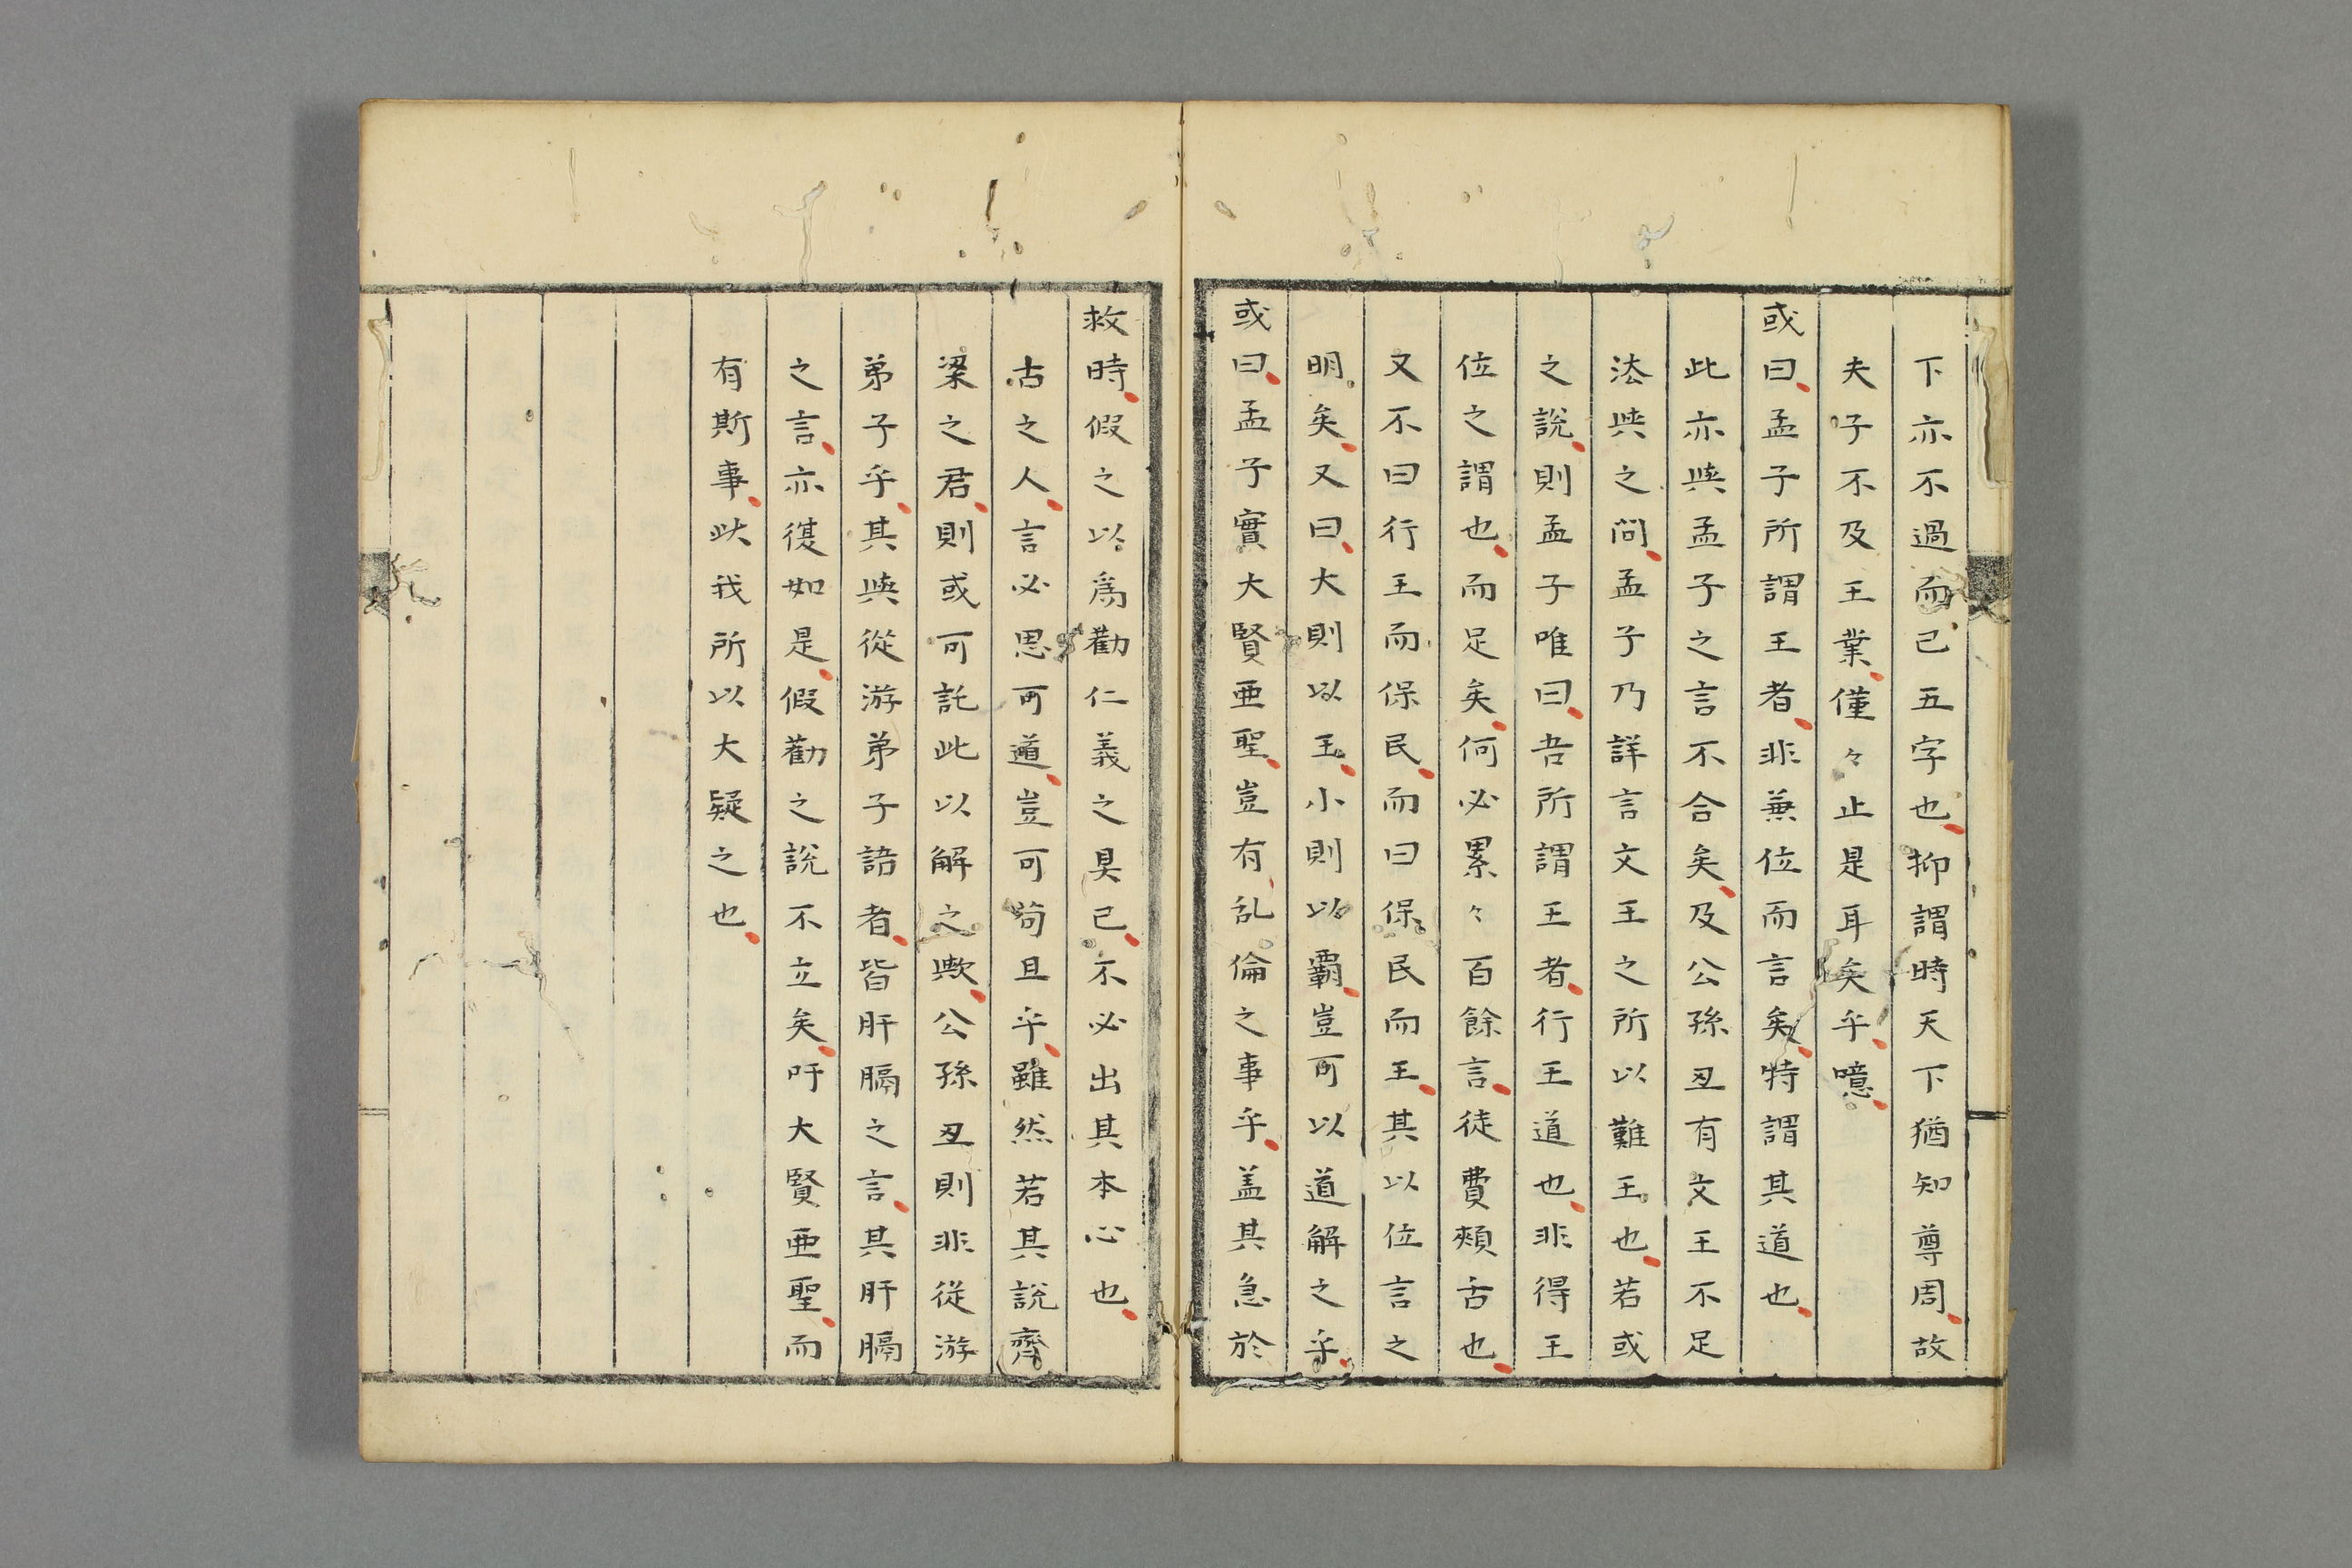 下亦不過而已五字也抑謂時天下猶知尊周故
夫子不及王業僅々止是耳矣乎噫
或曰孟子所謂王者非兼位而言矣特謂其道也
此亦與孟子之言不合矣及公孫丑有文王不足
法與之問孟子乃詳言文王之所以難王也若或
之說則孟子唯曰吾所謂王者行王道也非得王
位之謂也而足矣何必累々百餘言徒費頰舌也
又不曰行王而保民而曰保民而王其以位言之
明矣又曰大則以王小則以覇豈可以道解之乎
或曰孟子實大賢亜聖豈有乱倫之事乎盖其急於
救時假之以爲勸仁義之具已不必出其本心也
古之人言必思可道豈可苟且乎雖然若其說齊
梁之君則或可託此以解之歟公孫丑則非從游
弟子乎其與從游弟子語者皆肝膈之言其肝膈
之言亦復如是假勸之說不立矣吁大賢亜聖而
有斯事此我所以大疑之也